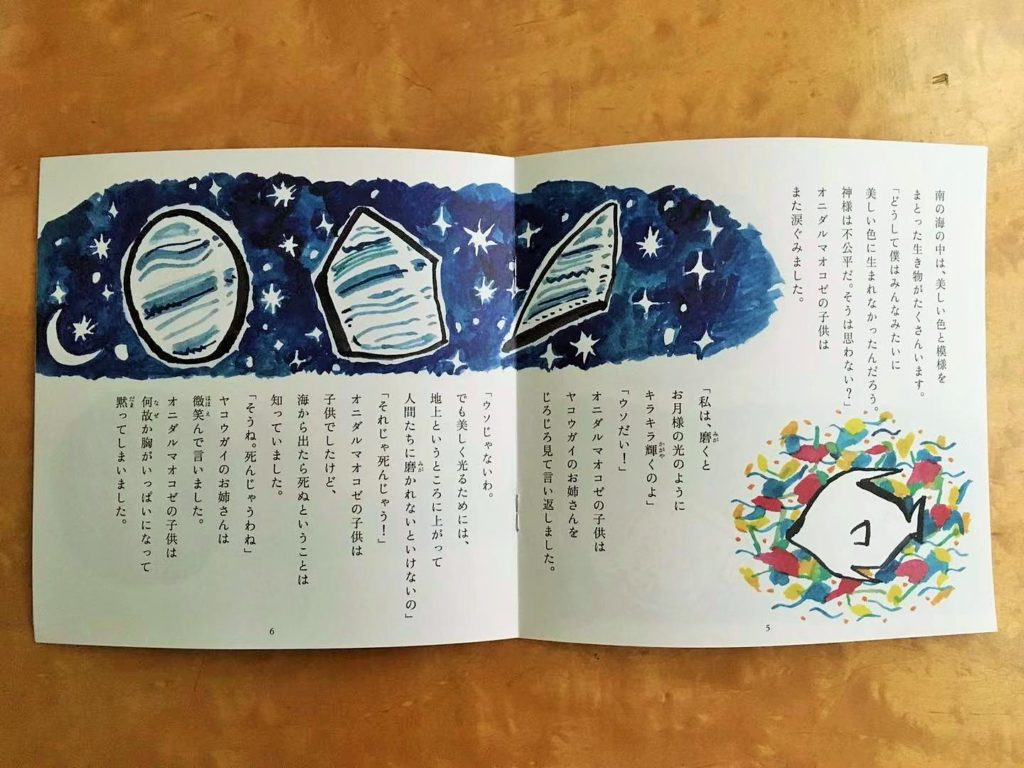 南の海の中は、美しい色と模様を
まとった生き物がたくさんいます。
「どうして僕はみんなみたいに
美しい色に生まれなかったんだろう。
神様は不公平だ。そうは思わない?」
オニダルマオコゼの子供は
また涙ぐみました。
「私は、磨くと
お月様の光のように
キラキラ輝くのよ」
「ウソだい!」
オニダルマオコゼの子供は
ヤコウガイのお姉さんを
じろじろ見て言い返しました。
5
「ウソじゃないわ。
でも美しく光るためには、
地上というところに上がって
人間たちに磨かれないといけないの」
「それじゃ死んじゃう!」
オニダルマオコゼの
子供でしたけど、
海から出たら死ぬということは
知っていました。
「そうね。死んじゃうわね」
ヤコウガイのお姉さんは
微笑んで言いました。
オニダルマオコゼの子供は
何故か胸がいっぱいになって
黙ってしまいました。
6